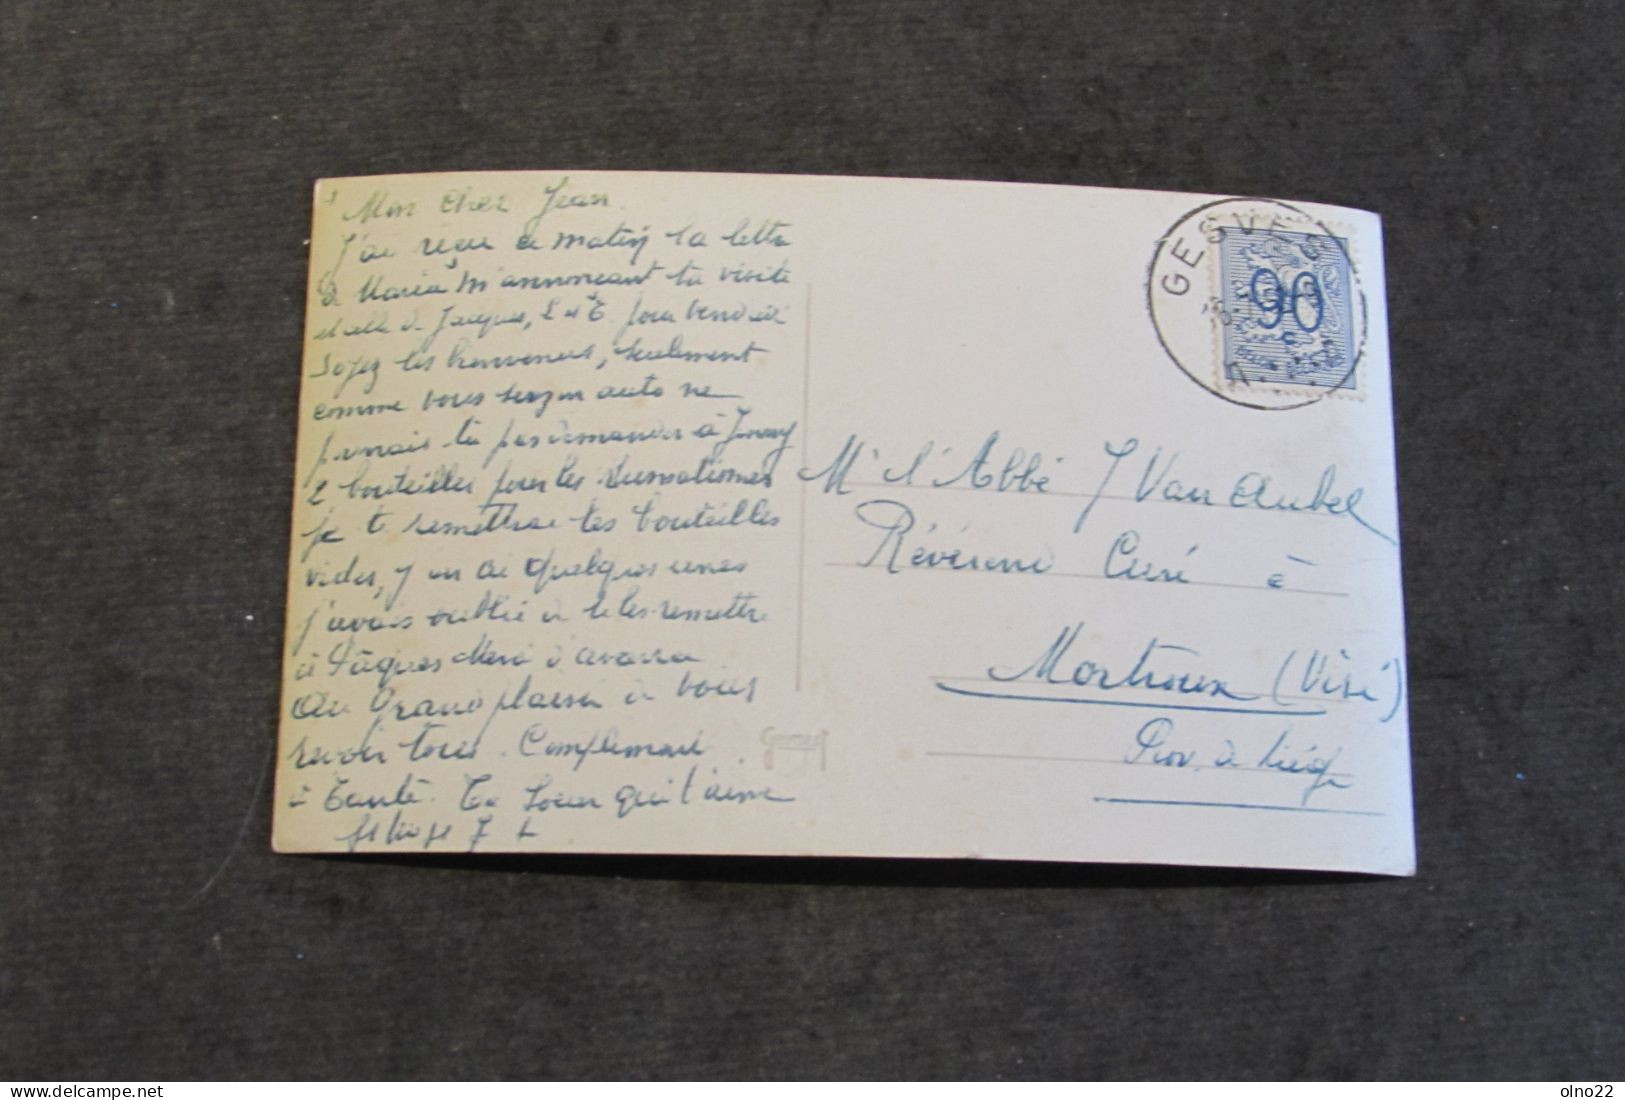 Mon cher Jean.
J'ai reçu ce matin la lettre
de Maria m'annonçant ta visite
et celle de Jacques, L et E. pour vendredi
Soyez les bienvenus, seulement
comme vous serez en auto ne
pourrais tu pas demander à
2 bouteilles pour les rhumatismes
je te remettrai les bouteilles
vides, j'en ai quelques unes
j'avais oublié de te les remettre
à Pâques Merci d'avance
Au grand plaisir de vous
revoir tous. Compliment
à Tante. Ta Soeur qui t'aime
GESVES
90
c
BELGIE
Mr l'Abbé J Van Aubel
Révérend Curé à
Mortroux (Visé)
Prov. de Liége
Gevaert
olno22